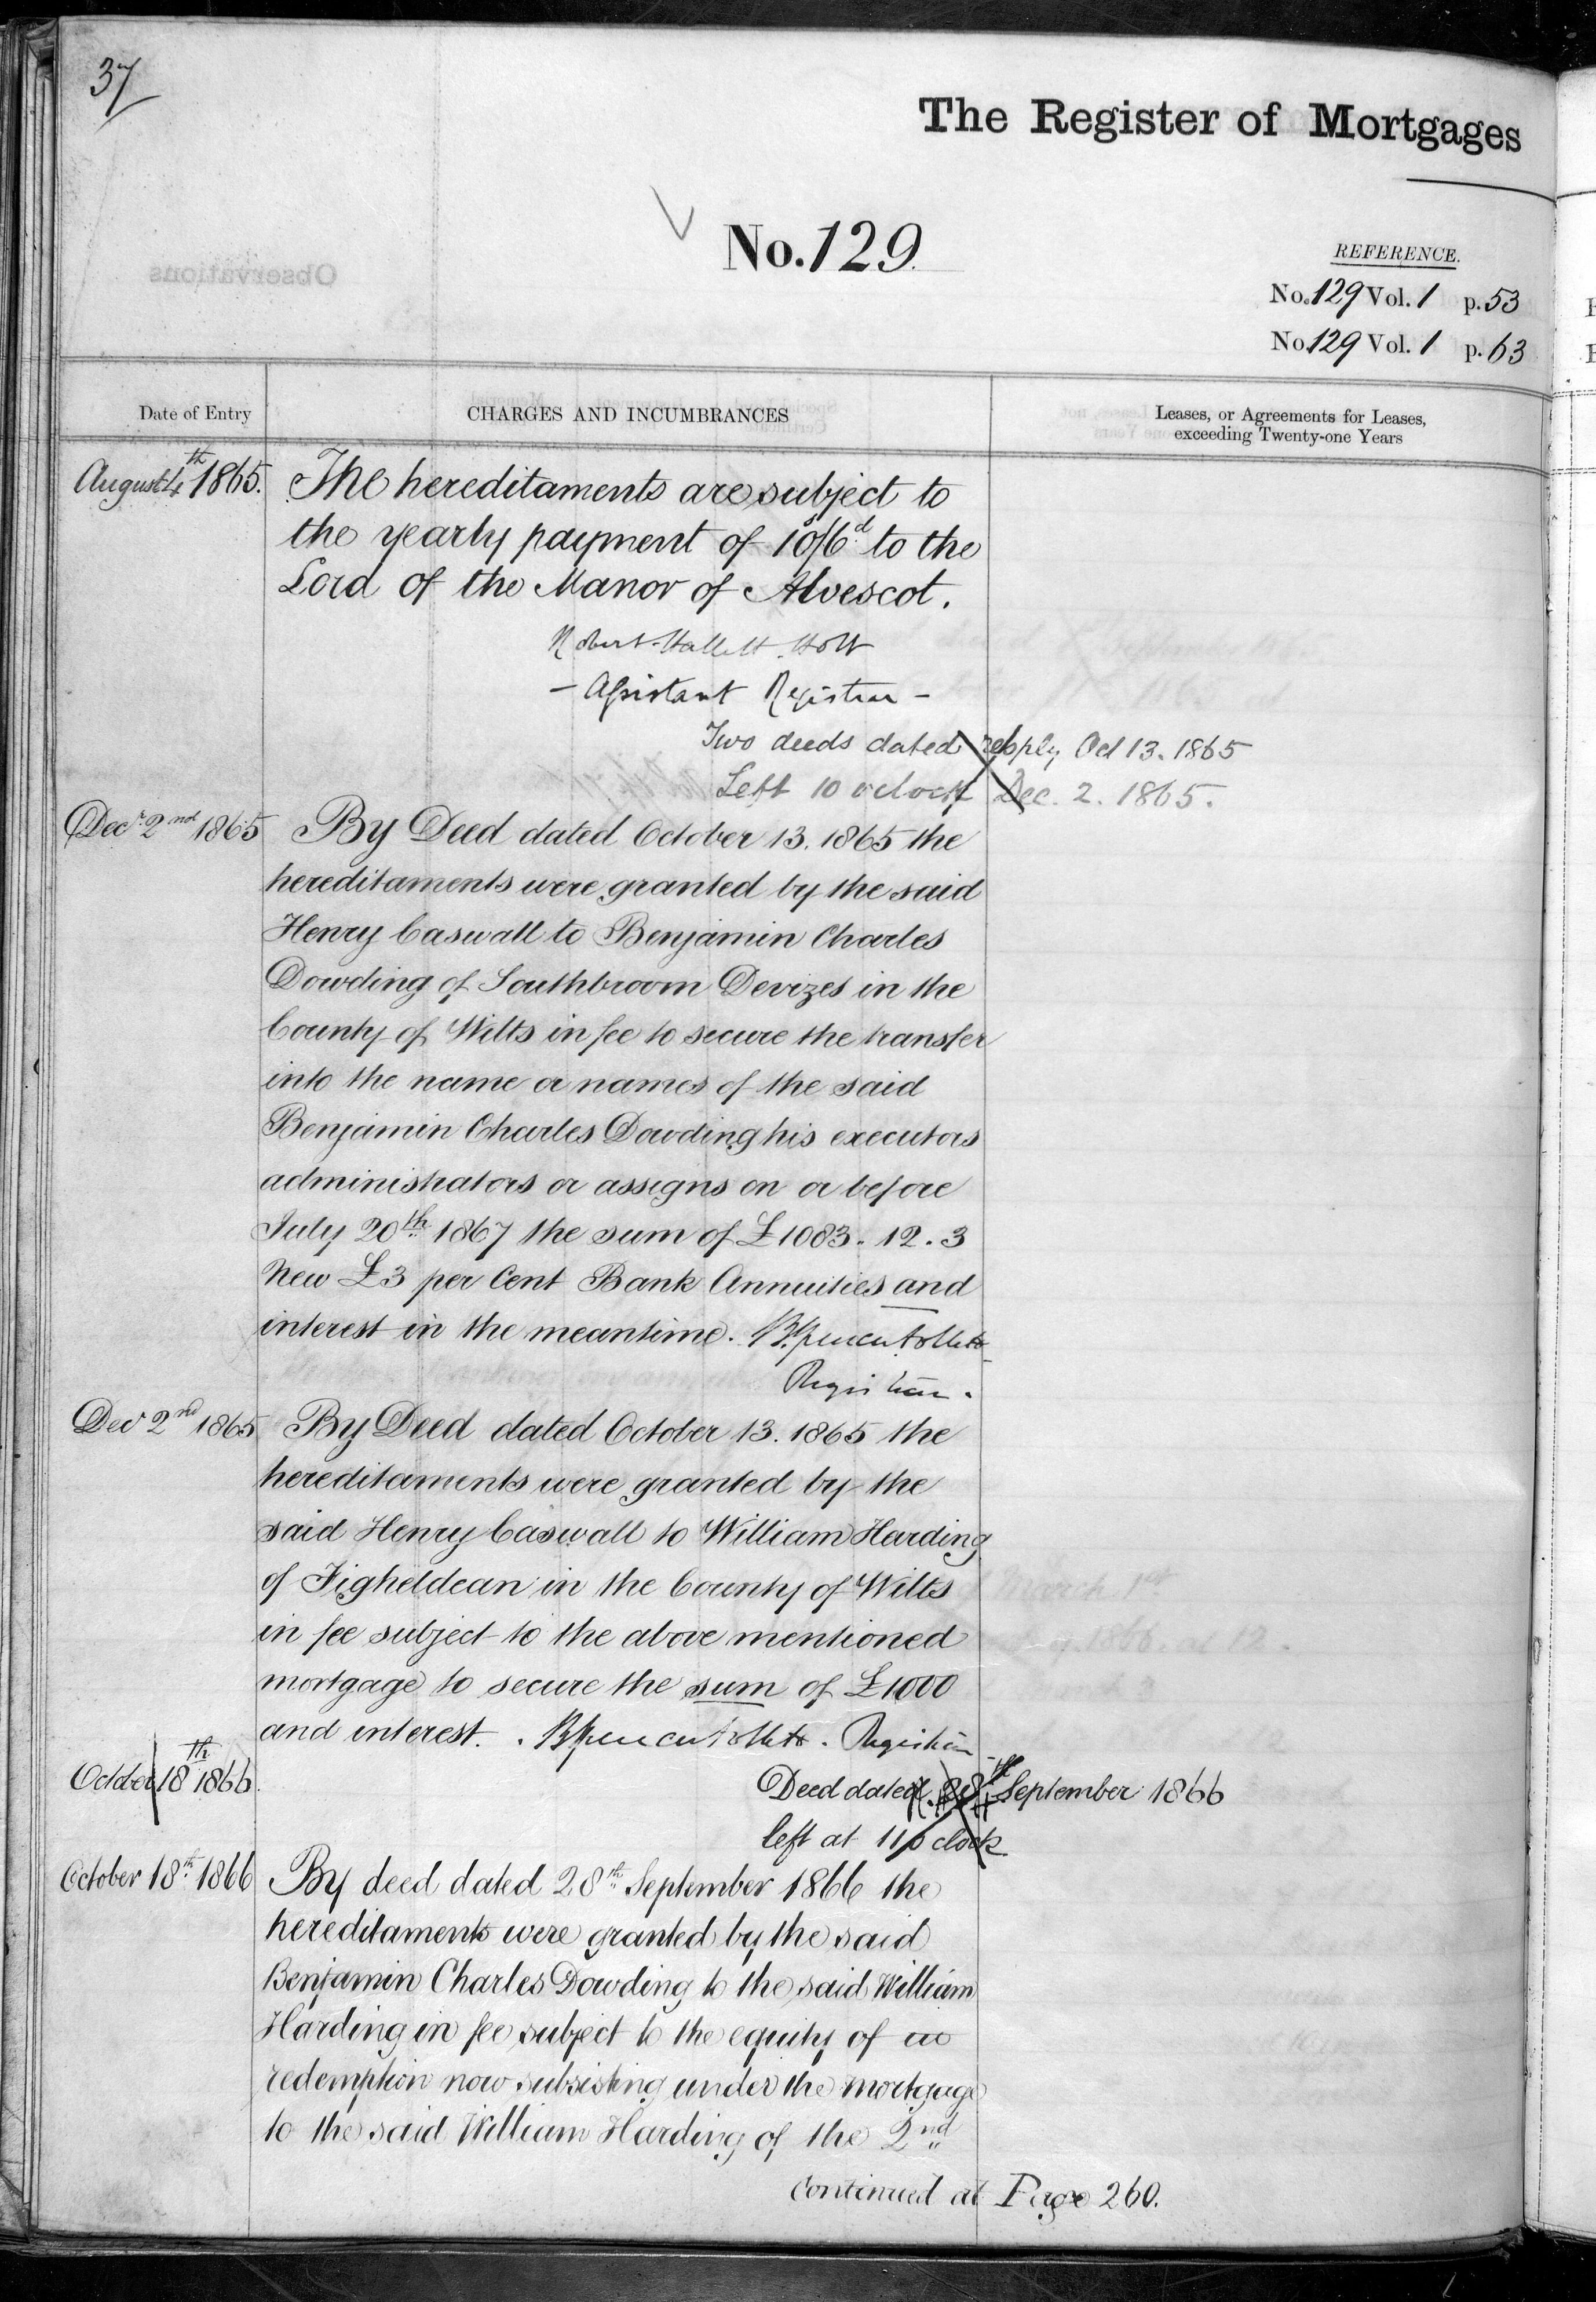 37
The Register of Mortgages
No. 129.
REFERENCE.
No. 129 Vol. 1 p. 53
No 129 Vol. 1 p. 63
Observations
Date of Entry
CHARGES AND INCUMBRANCES
Leases, or Agreements for Leases,
exceeding Twenty-one Years
August 4th 1865. The hereditaments are subject to
the yearly payment of 10s/6d to the
Lord of the Manor of Alvescot.
Robert Hallett Holt
- Assistant Registrar -
Two deeds dated Oct 13. 1865
Left 10 oclock Dec. 2. 1865.
Decr 2nd 1865 By Deed dated October 13. 1865 the
hereditaments were granted by the said
Henry Caswall to Benjamin Charles
Dowding of Southbroom Devizes in the
County of Wilts in fee to secure the transfer
into the name or names of the said
Benjamin Charles Dowding his executors
administrators or assigns on or before
July 20th 1867 the sum of £1083. 12. 3
New £3 per Cent Bank Annuities and
interest in the meantime.
Registrar.
Decr 2nd 1865 By Deed dated October 13. 1865 the
hereditaments were granted by the
said Henry Caswall to William Harding
of Figheldean in the County of Wilts
in fee subject to the above mentioned
mortgage to secure the sum of £1000
and interest. Registrar
October 18th 1866. Deed dated 28th September 1866
left at 11 o clock
October 18th 1866 By deed dated 28th September 1866 the
hereditaments were granted by the said
Benjamin Charles Dowding to the said William
Harding in fee subject to the equity of
redemption now subsisting under the mortgage
to the said William Harding of the 2nd
Continued at Page 260.